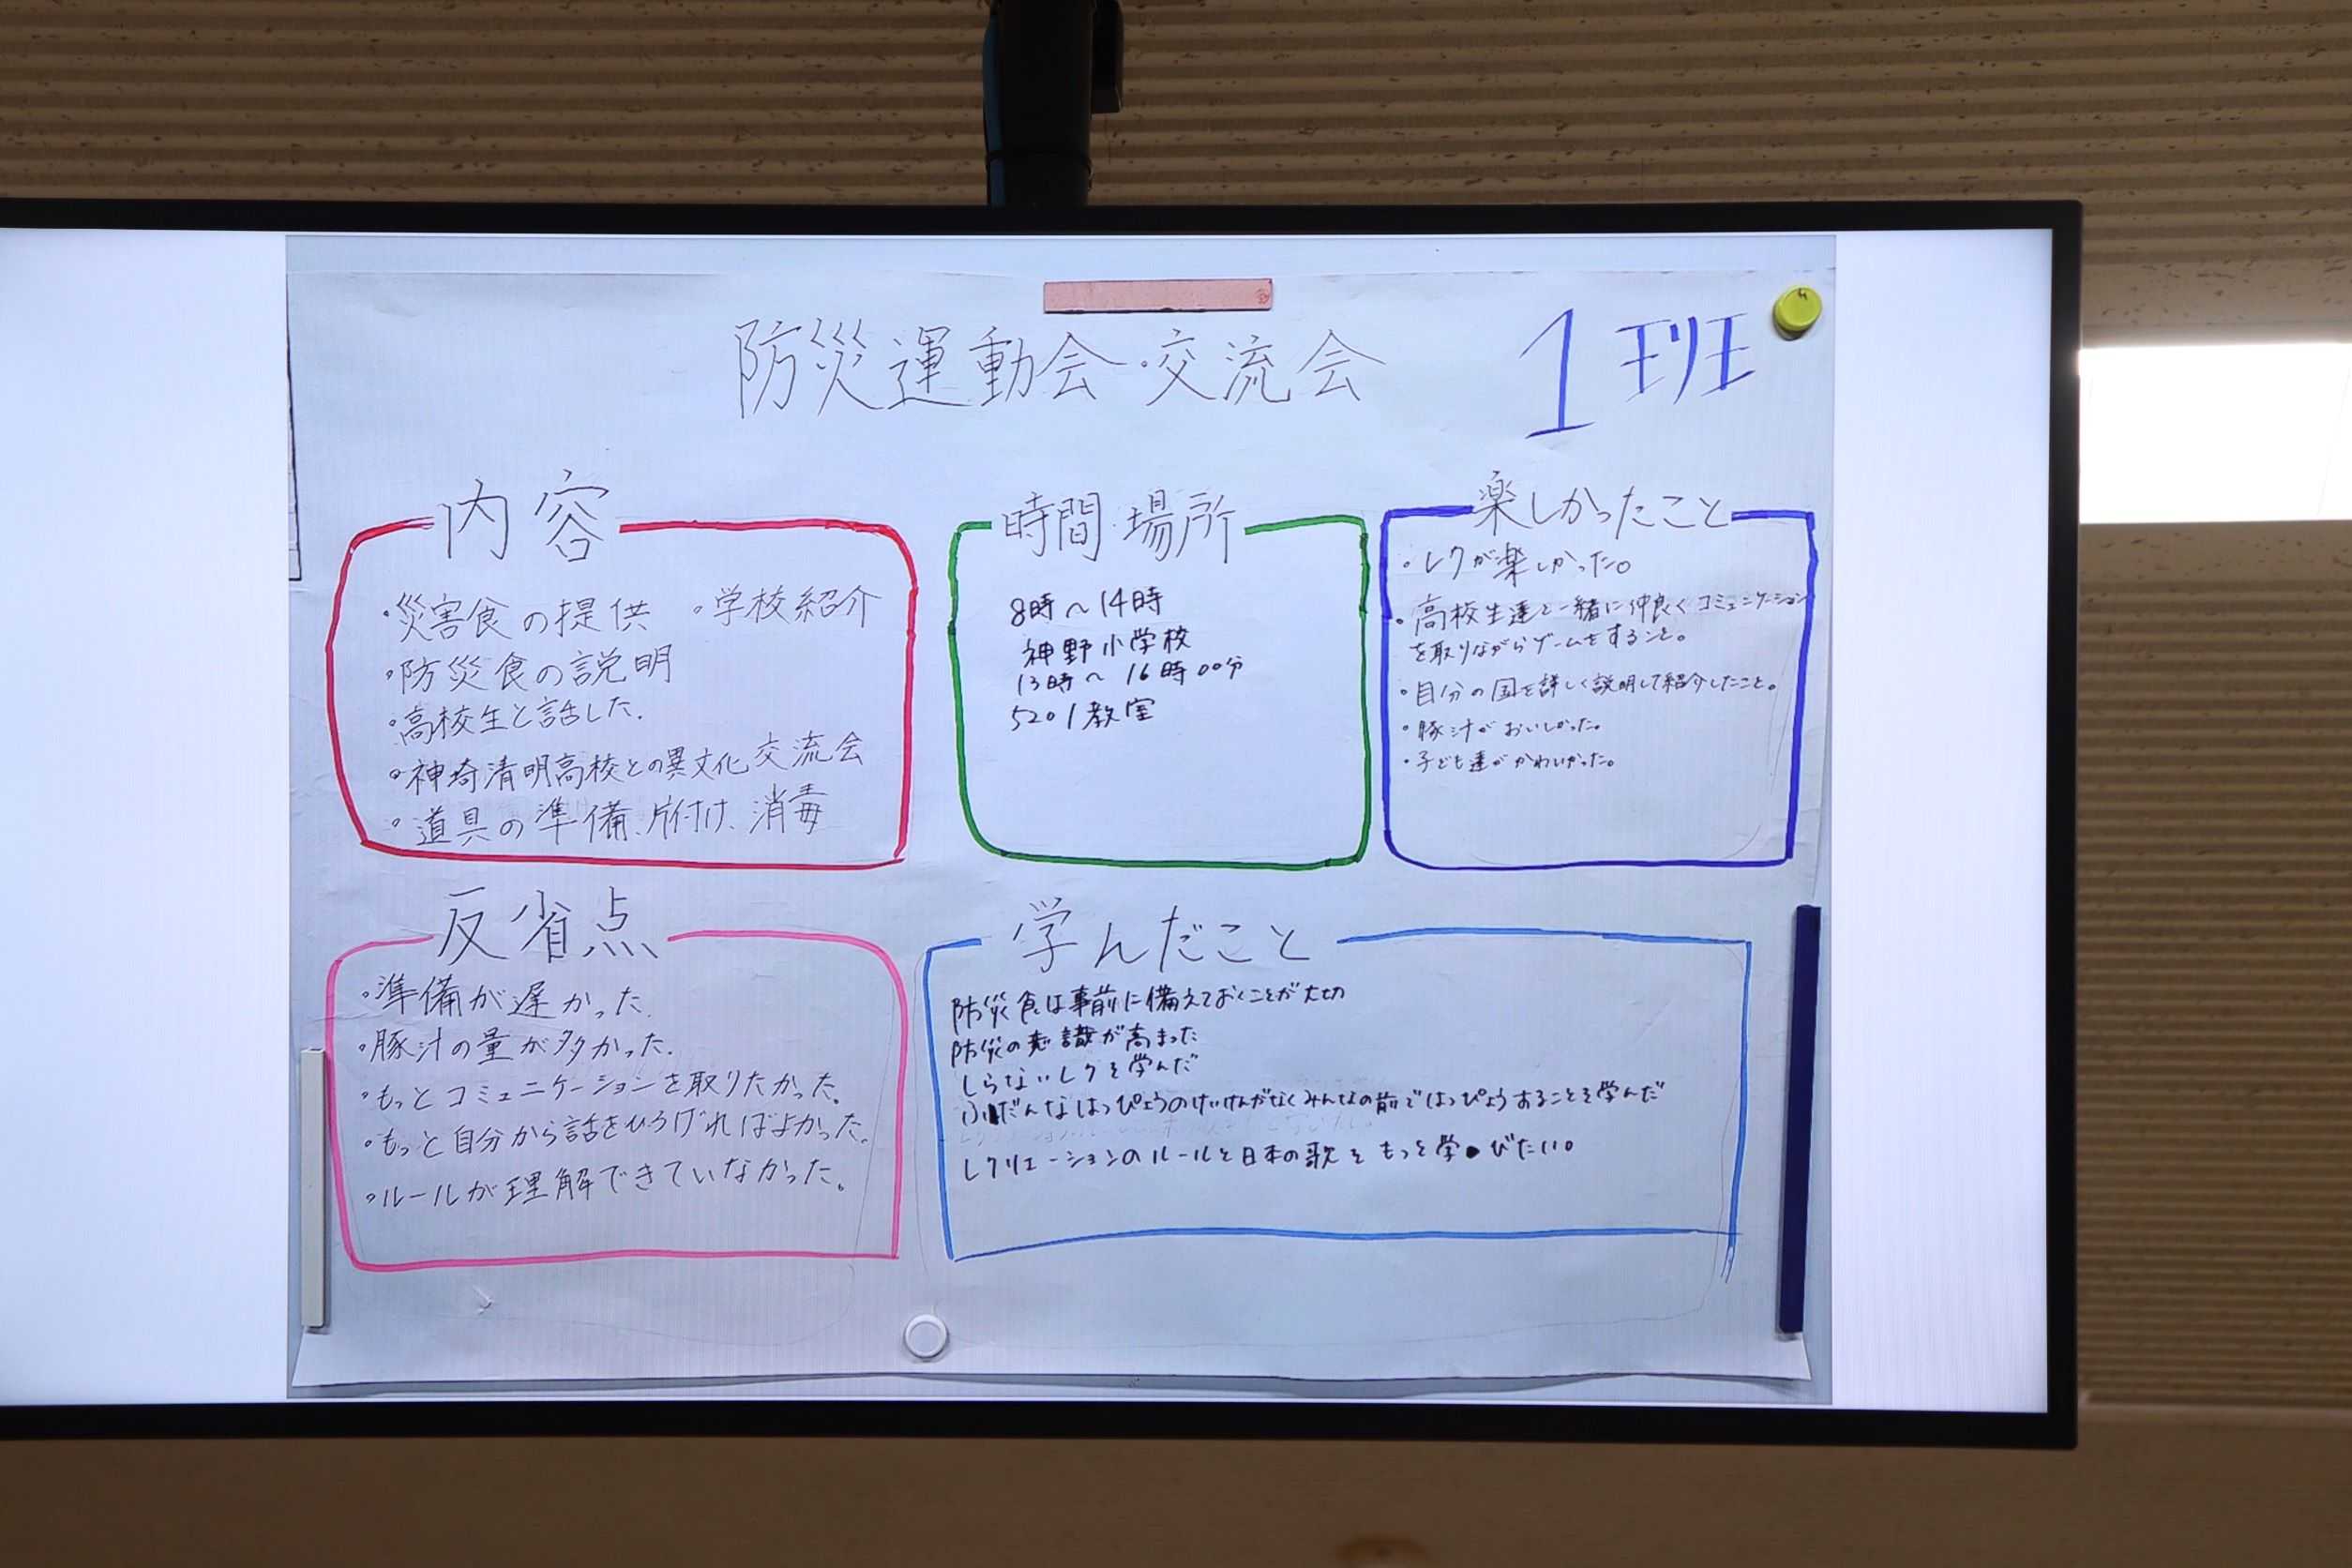 防災運動会・交流会
1班
内容
・災害食の提供 ・学校紹介
・防災食の説明
・高校生と話した.
・神埼清明高校との異文化交流会
・道具の準備、片付け、消毒
時間・場所
8時～14時
神野小学校
13時～16時00分
5201教室
楽しかったこと
・レクが楽しかった。
・高校生達と一緒に仲良くコミュニケーション
を取りながらゲームをすること。
・自分の国を詳しく説明して紹介したこと。
・豚汁がおいしかった。
・子ども達がかわいかった。
反省点
・準備が遅かった.
・豚汁の量が多かった.
・もっとコミュニケーションを取りたかった。
・もっと自分から話をひろげればよかった。
・ルールが理解できていなかった。
学んだこと
防災食は事前に備えておくことが大切
防災の意識が高まった
しらないレクを学んだ
ふだんなはっぴょうのけいけんがなくみんなの前ではっぴょうすることを学んだ
レクリエーションのルールと日本の歌をもっと学びたい。